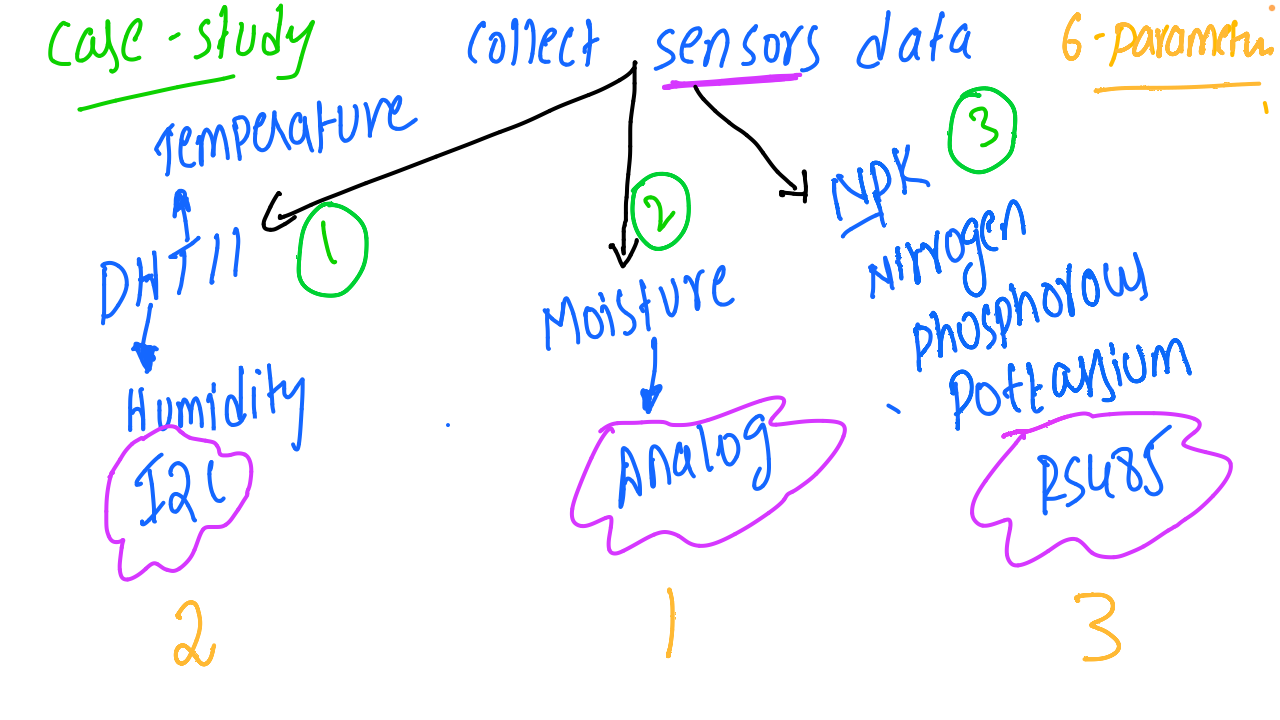 case-study
collect sensors data
6-parametu
Temperature
DHT11
Humidity
I2C
2
1
2
Moisture
Analog
1
3
NPK
Nitrogen
phosphorous
Pottassium
RS485
3